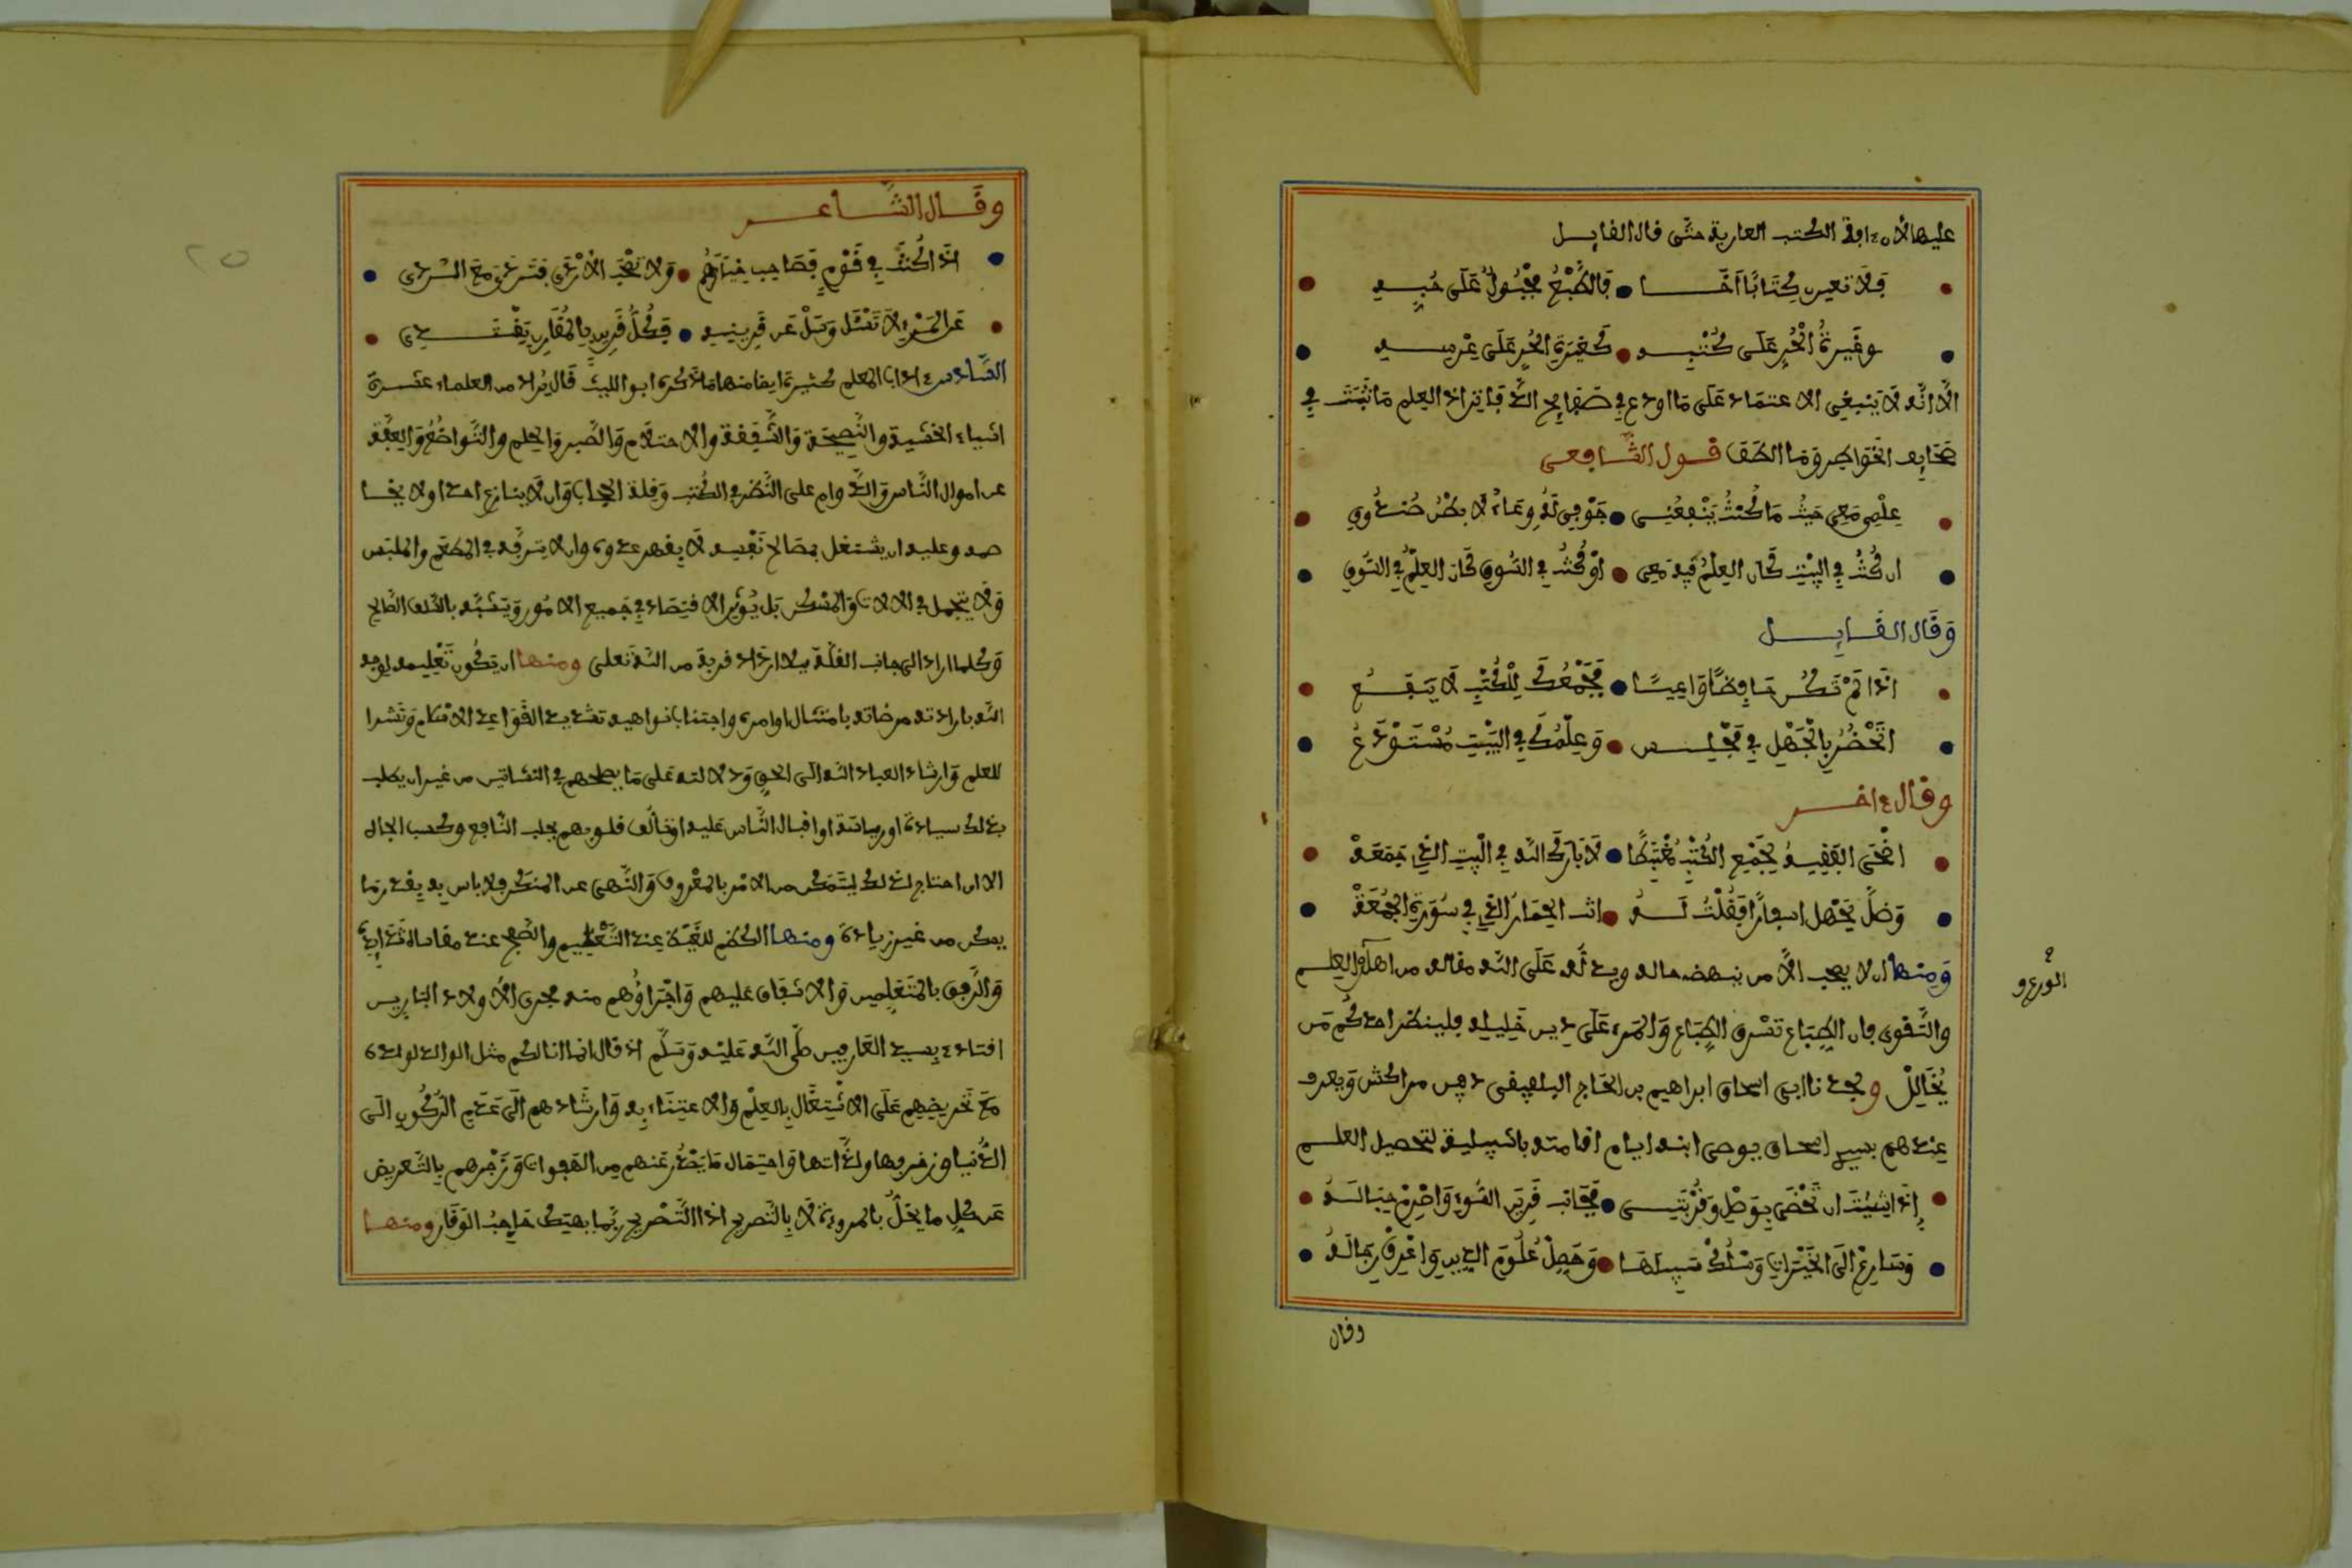 عليها لأن ءافة الكتب العارية حتى قال القايل
فلا تعيرن كتابا أخا فالطبع مجبول على حبه
وغيرة الحر على كتبه كغيرة الحر على عرسه
الا انه لا ينبغي الاعتماد على ما اودع في صفايح الدفاتر اذ العلم ما ثبت في
صحايف الخواطر وما الطف قول الشافعي
علمي معي حيث ما كنت ينفعني جوفي له وعاء لا بطن صندوق
ان كنت في البيت كان العلم فيه معي او كنت في السوق كان العلم في السوق
وقال القايل
اذا لم تكن حافظا واعيا فجمعك للكتب لا ينفع
اتحضر بالجهل في مجلس وعلمك في البيت مستودع
وقال ءاخر
اضحى الفقيه بجمع الكتب مغتبطا لا بارك الله في البيت الذي جمعه
وظل يحمل اسفارا فقلت له انت الحمار الذي في سورة الجمعه
ومنها ان لا يصحب الا من ينهضه حاله ويدله على الله مقاله من اهل العلم
الورع و
والتقوى فان الطباع تسرق الطباع والمرء على دين خليله فلينظر احدكم من
يخالل ولجدنا ابي اسحاق ابراهيم بن الحاج البلفيقي دفين مراكش ويعرف
عندهم بسيد اسحاق يوصي ابنه ايام اقامته باشبيلية لتحصيل العلم
إذا شئت ان تحضى بوصل وقربتي فجانب قرين السوء واصرم حباله
وسارع الى الخيرات واسلك سبيلها وحصل علوم الدين واعرف رجاله
وقال
وقال الشاعر
اذا كنت في قوم فصاحب خيارهم ولا تصحب الاردى فتردى مع الردى
عن المرء لا تسئل وسل عن قرينه فكل قرين بالمقارن يقتدي
السادس ءاداب المعلم كثيرة ايضا منها ما ذكره ابو الليث قال يراد من العلماء عشرة
اشياء الخشية والنصيحة والشفقة والاحتلام والصبر والحلم والتواضع والعفة
عن اموال الناس والدوام على النظر في الكتب وقلة الحجاب وان لا ينازع احدا ولا يخا
صمه وعليه ان يشتغل بمصالح نفسه لا بقهر عدوه وان لا يترفه في المطعم والملبس
ولا يتجمل في الالات والمسكن بل يؤثر الاقتصاد في جميع الامور ويتشبه بالسلف الصالح
وكلما ازداد الى جانب القلة ميلا ازداد قربة من الله تعلى ومنها ان يكون تعليمه لوجه
الله بارادته مرضاته بامتثال اوامره واجتناب نواهيه تشييد القواعد الاحكام ونشرا
للعلم وارشاد العباد الله الى الحق ودلالته على ما يصلحهم في النشاتين من غير ان يطلب
بذلك سيادة او رياسة او اقبال الناس عليه او تألف قلوبهم بجلب النافع وكسب الجاه
الا ان احتاج لذلك ليتمكن من الامر بالمعروف والنهي عن المنكر فلا باس به بقدر ما
يمكن من غير زيادة ومنها الكظم للغيظ عند التعليم والصفح عند مقاساة شدايده
والرفق بالمتعلمين والاشفاق عليهم واجراؤهم منه مجرى الأولاد البارين
اقتداء بسيد العارفين صلى الله عليه وسلم اذ قال انما انا لكم مثل الوالد لولده
مع تحريضهم على الاشتغال بالعلم والاعتناء به وارشادهم الى عدم الركون الى
الدنيا وزخرفها ولذاتها واحتمال ما يصدر عنهم من الهفوات وزجرهم بالتعريض
عن كل ما يخل بالمروءة لا بالتصريح اذ التصريح ربما يهتك حاجب الوقار ومنها